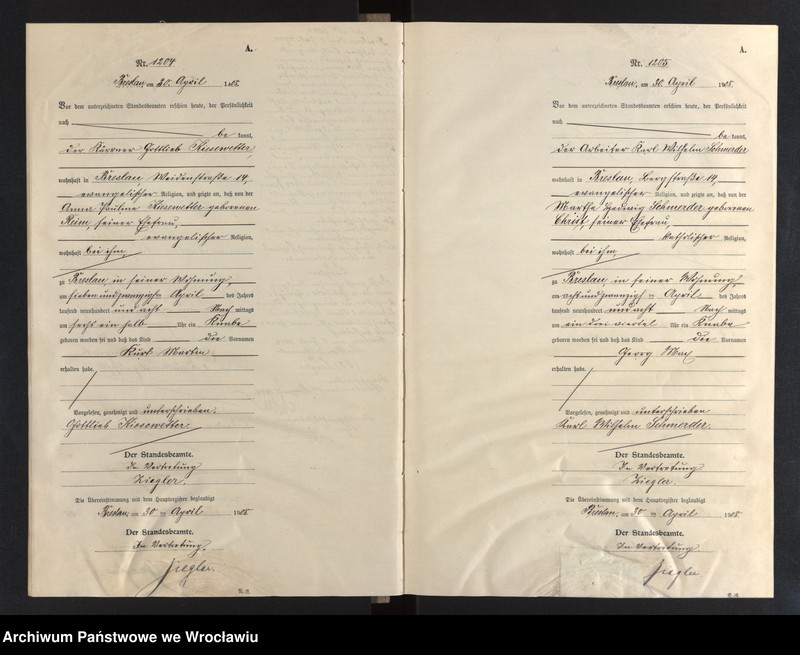 A.
Nr. 1204
Breslau, am 30. April 1908.
Vor dem unterzeichneten Standesbeamten erschien heute, der Persönlichkeit
nach
be kannt,
der Kürssner Gottlieb Kiesewetter,
wohnhaft in Breslau, Weidenstraße 14,
evangelischer Religion, und zeigte an, daß von der
Anna Pauline Kiesewetter geborenen
seiner Ehefrau,
evangelischer Religion,
wohnhaft bei ihm,
zu Breslau in seiner Wohnung,
am sieben und zwanzigsten April des Jahres
tausend neunhundert und acht Nach mittags
um sechs ein halb Uhr ein Knabe
geboren worden sei und daß das Kind die Vornamen
Kurt Martin
erhalten habe.
Vorgelesen, genehmigt und unterschrieben.
Gottlieb Kiesewetter.
Der Standesbeamte.
In Vertretung
Ziegler.
Die Übereinstimmung mit dem Hauptregister beglaubigt
Breslau, am 30 ten April 1908.
Der Standesbeamte.
In Vertretung.
Ziegler.
A.
Nr. 1205
Breslau, am 30. April 1908.
Vor dem unterzeichneten Standesbeamten erschien heute, der Persönlichkeit
nach
be kannt,
der Arbeiter Karl Wilhelm Schmerder
wohnhaft in Breslau, Bergstraße 19,
evangelischer Religion, und zeigte an, daß von der
Martha Hedwig Schmerder geborenen
Christ, seiner Ehefrau,
katholischer Religion,
wohnhaft bei ihm
zu Breslau in seiner Wohnung,
am acht und zwanzigsten April des Jahres
tausend neunhundert und acht Nach mittags
um ein drei viertel Uhr ein Knabe
geboren worden sei und daß das Kind die Vornamen
Georg Max
erhalten habe.
Vorgelesen, genehmigt und unterschrieben
Karl Wilhelm Schmerder.
Der Standesbeamte.
In Vertretung
Ziegler.
Die Übereinstimmung mit dem Hauptregister beglaubigt
Breslau, am 30 ten April 1908.
Der Standesbeamte.
In Vertretung.
Ziegler
Archiwum Państwowe we Wrocławiu